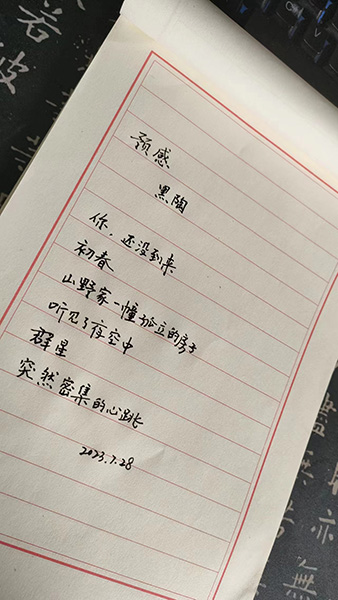 若
波
预感
黑陶
你，还没到来
初春
山野家一幢孤立的房子
听见了夜空中
群星
突然密集的心跳
2023.7.28